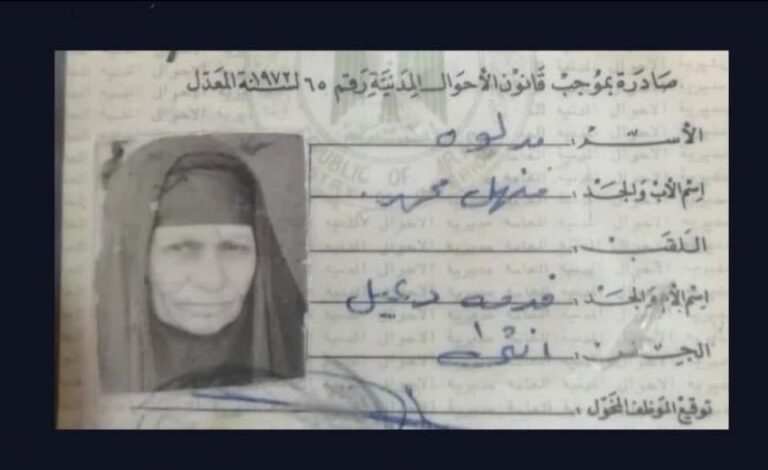 صادرة بموجب قانون الأحوال المدنية رقم ٦٥ لسنة ١٩٧٢ المعدل
الأسم : مدلوه
إسم الأب والجد : منهل محمد
REPUBLIC OF
اللقب :
إسم الأم والجد : دعيبل
الجنس : انثى
توقيع الموظف المخول :